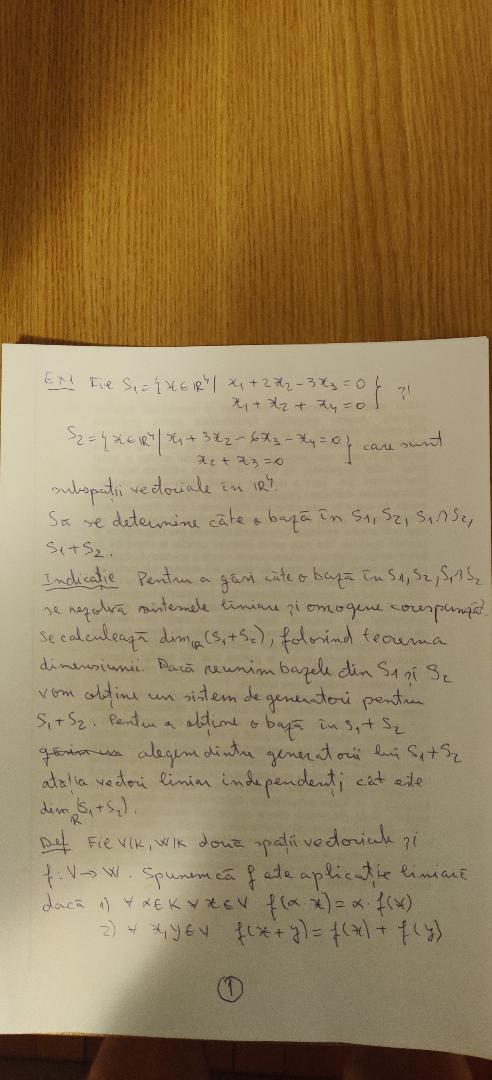 Ex1 Fie S1 = {x∈ℝ⁴ | x1 + 2x2 - 3x3 = 0
x1 + x2 + x4 = 0 } și
S2 = {x∈ℝ⁴ | x1 + 3x2 - 6x3 - x4 = 0
x2 + x3 = 0 } care sunt
subspații vectoriale în ℝ⁴.
Să se determine câte o bază în S1, S2, S1∩S2,
S1+S2.
Indicație Pentru a găsi câte o bază în S1, S2, S1∩S2
se rezolvă sistemele liniare și omogene
Se calculează dimℝ(S1+S2), folosind teorema
dimensiunii. Dacă reunim bazele din S1 și S2
vom obține un sistem de generatori pentru
S1+S2. Pentru a obține o bază în S1+S2
alegem dintre generatorii lui S1+S2
atâția vectori liniar independenți cât este
dimℝ(S1+S2).
Def Fie V/K, W/K două spații vectoriale și
f: V→W. Spunem că f este aplicație liniară
dacă 1) ∀ α∈K ∀ x∈V f(α·x) = α·f(x)
2) ∀ x,y∈V f(x+y) = f(x) + f(y)
1